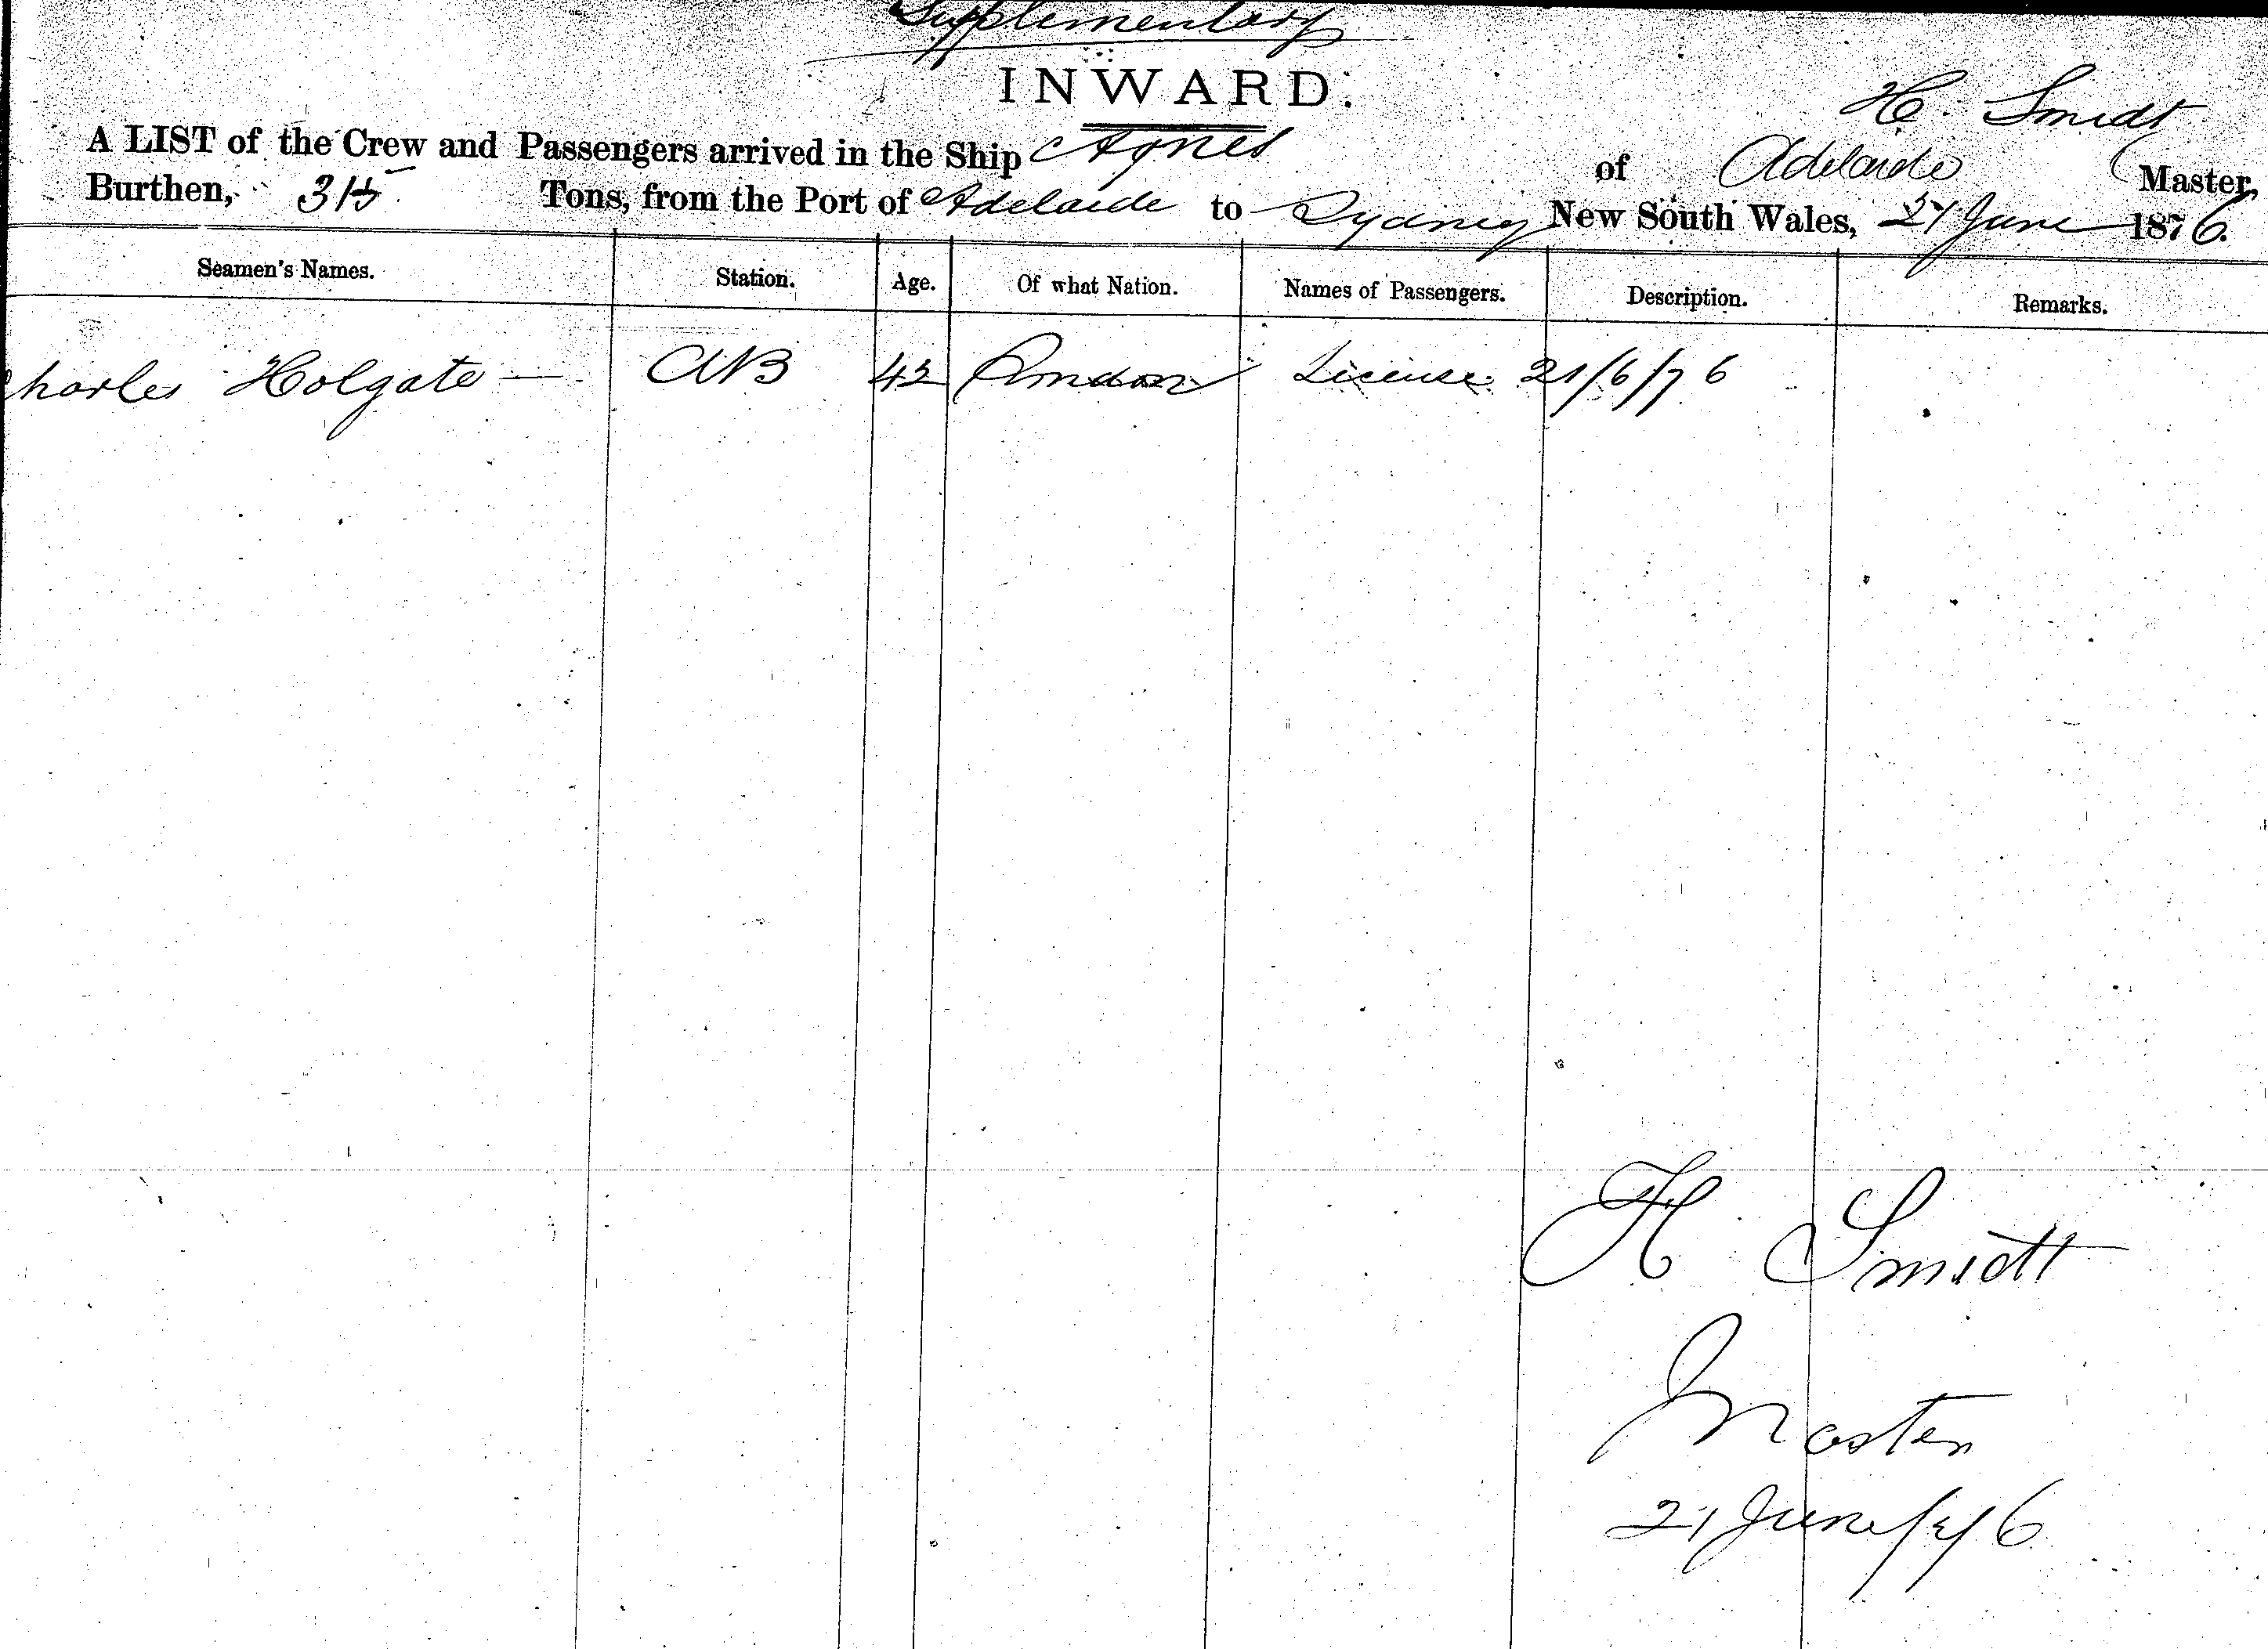 Supplementary
INWARD.
H. Smidt
A LIST of the Crew and Passengers arrived in the Ship Agnes of Adelaide Master,
Burthen, 315 Tons, from the Port of Adelaide to Sydney New South Wales, 21 June 1876.
Seamen's Names. Station. Age. Of what Nation. Names of Passengers. Description. Remarks.
Charles Holgate — AB 42 London License 21/6/76
H Smidt
Master
21 June/76